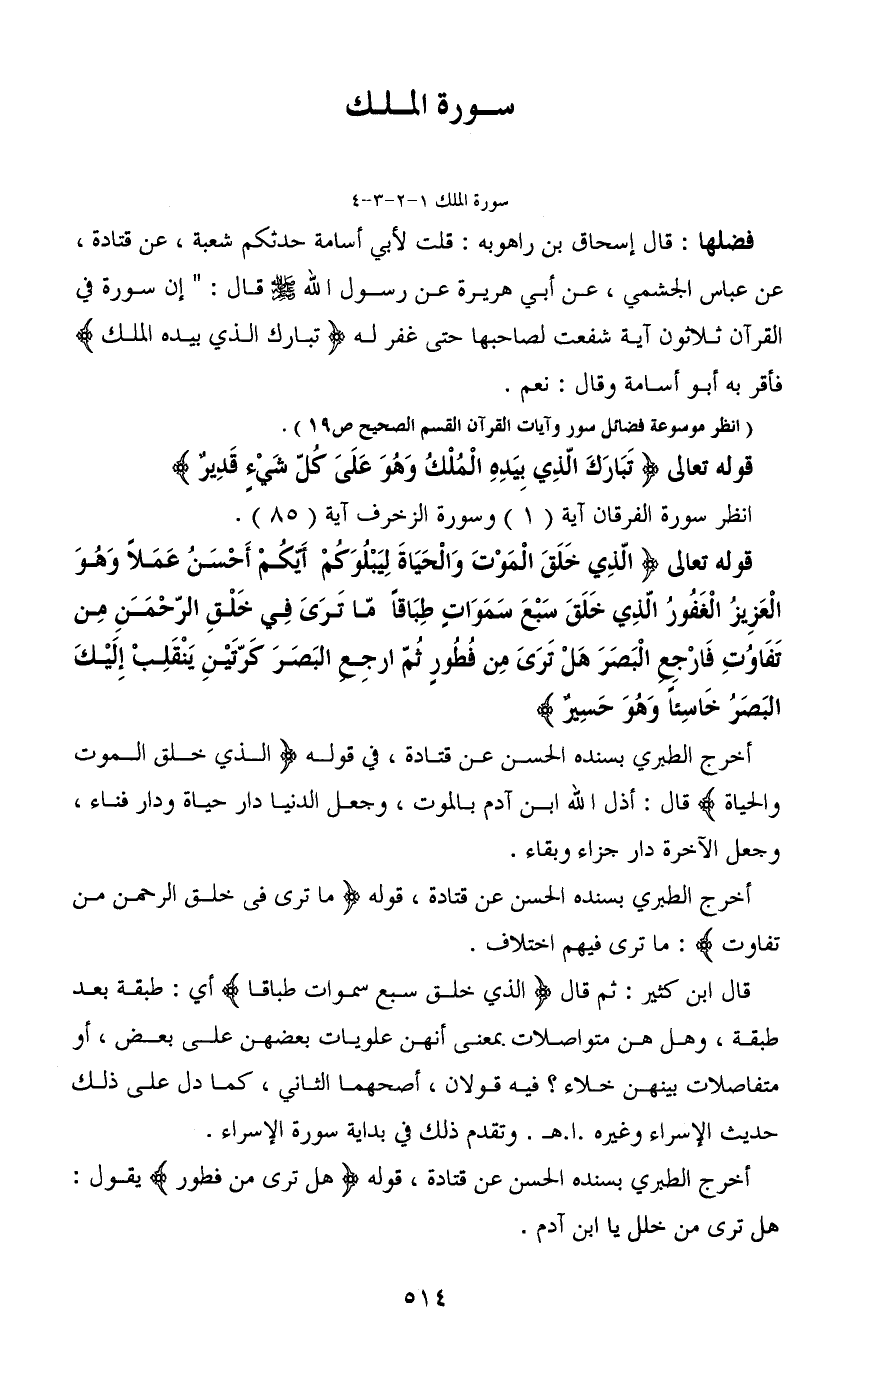 سورة الملك
سورة الملك ١-٢-٣-٤
فضلها : قال إسحاق بن راهويه : قلت لأبي أسامة حدثكم شعبة ، عن قتادة ،
عن عباس الجشمي ، عن أبي هريرة عن رسول الله ﷺ قال : " إن سورة في
القرآن ثلاثون آية شفعت لصاحبها حتى غفر له ﴿ تبارك الذي بيده الملك ﴾
فأقر به أبو أسامة وقال : نعم .
( انظر موسوعة فضائل سور وآيات القرآن القسم الصحيح ص١٩ ) .
قوله تعالى ﴿ تَبَارَكَ الّذِي بِيَدِهِ الْمُلْكُ وَهُوَ عَلَىَ كُلّ شَيْءٍ قَدِيرٌ ﴾
انظر سورة الفرقان آية ( ١ ) وسورة الزخرف آية ( ٨٥ ) .
قوله تعالى ﴿ الّذِي خَلَقَ الْمَوْتَ وَالْحَيَاةَ لِيَبْلُوَكُمْ أَيّكُمْ أَحْسَنُ عَمَلاً وَهُوَ
الْعَزِيزُ الْغَفُورُ الّذِي خَلَقَ سَبْعَ سَمَوَاتٍ طِبَاقاً مّا تَرَىَ فِي خَلْقِ الرّحْمَـَنِ مِن
تَفَاوُتٍ فَارْجِعِ الْبَصَرَ هَلْ تَرَىَ مِن فُطُورٍ ثُمّ ارجِعِ البَصَرَ كَرّتَيْنِ يَنْقَلِبْ إِلَيْكَ
البَصَرُ خَاسِئاً وَهُوَ حَسِيرٌ ﴾
أخرج الطبري بسنده الحسن عن قتادة ، في قوله ﴿ الذي خلق الموت
والحياة ﴾ قال : أذل الله ابن آدم بالموت ، وجعل الدنيا دار حياة ودار فناء ،
وجعل الآخرة دار جزاء وبقاء .
أخرج الطبري بسنده الحسن عن قتادة ، قوله ﴿ ما ترى فى خلق الرحمن من
تفاوت ﴾ : ما ترى فيهم اختلاف .
قال ابن كثير : ثم قال ﴿ الذي خلق سبع سموات طباقا ﴾ أي : طبقة بعد
طبقة ، وهل هن متواصلات بمعنى أنهن علويات بعضهن على بعض ، أو
متفاصلات بينهن خلاء ؟ فيه قولان ، أصحهما الثاني ، كما دل على ذلك
حديث الإسراء وغيره .ا.هـ . وتقدم ذلك في بداية سورة الإسراء .
أخرج الطبري بسنده الحسن عن قتادة ، قوله ﴿ هل ترى من فطور ﴾ يقول :
هل ترى من خلل يا ابن آدم .
٥١٤